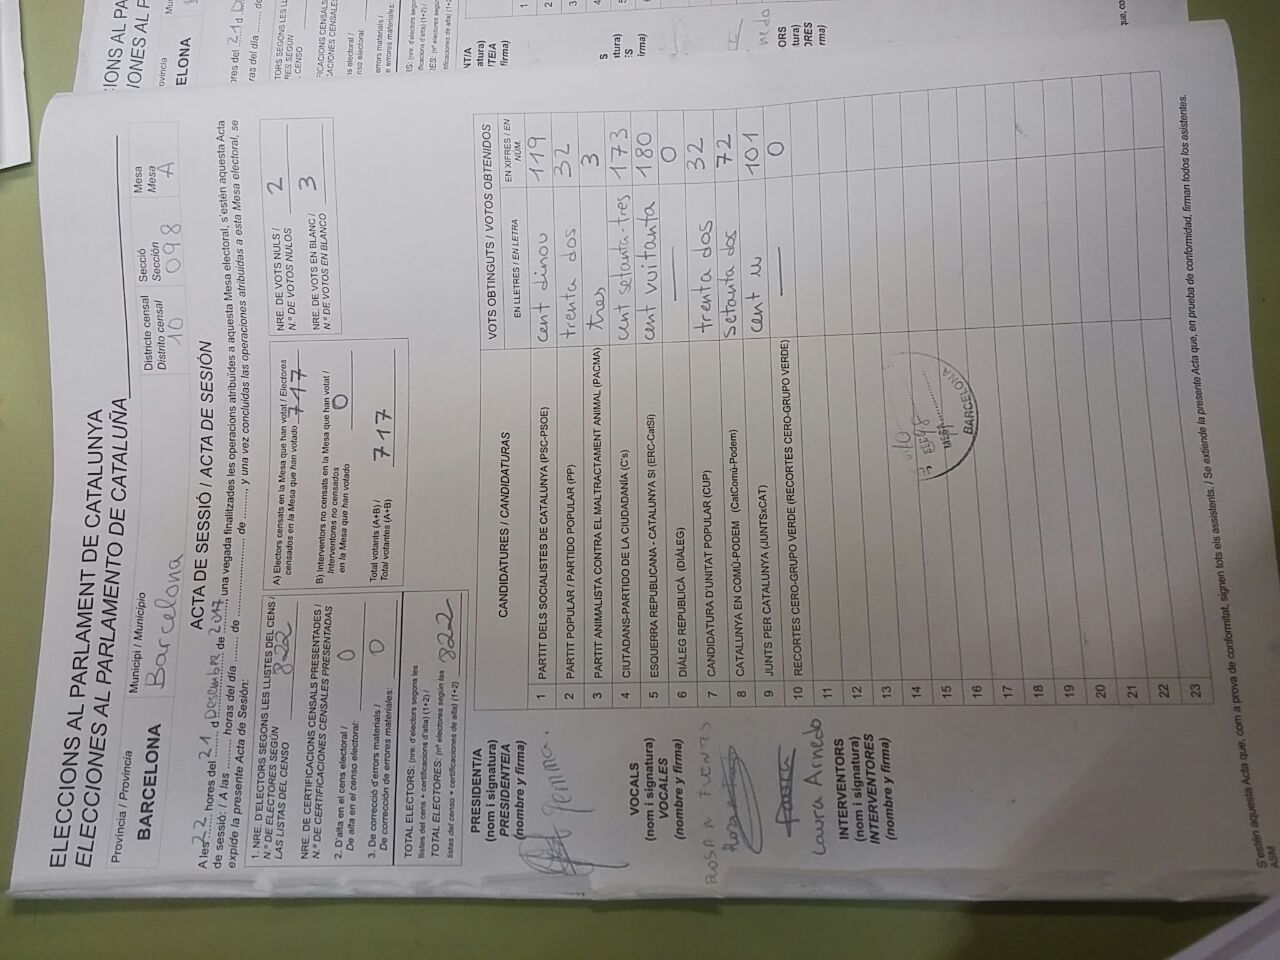 ELECCIONS AL PARLAMENT DE CATALUNYA
ELECCIONES AL PARLAMENTO DE CATALUÑA
Provincia / Provincia
BARCELONA
Municipi / Municipio
Barcelona
Districte censal
Distrito censal
10
Secció
Sección
098
Mesa
Mesa
A
ACTA DE SESSIÓ / ACTA DE SESIÓN
A les 22 hores del 21 d Desembre de 2017, una vegada finalitzades les operacions atribuïdes a aquesta Mesa electoral, s'estén aquesta Acta
de sessió: / A las ........ horas del día ........ de ................ de ........, y una vez concluidas las operaciones atribuidas a esta Mesa electoral, se
expide la presente Acta de Sesión:
1. NRE. D'ELECTORS SEGONS LES LLISTES DEL CENS /
N.º DE ELECTORES SEGÚN
LAS LISTAS DEL CENSO
822
NRE. DE CERTIFICACIONS CENSALS PRESENTADES /
N.º DE CERTIFICACIONES CENSALES PRESENTADAS
2. D'alta en el cens electoral /
De alta en el censo electoral:
0
3. De correcció d'errors materials /
De corrección de errores materiales:
0
TOTAL ELECTORS: (nre. d'electors segons les
llistes del cens + certificacions d'alta) (1+2) /
TOTAL ELECTORES: (nº electores según las
listas del censo + certificaciones de alta) (1+2)
822
A) Electors censats en la Mesa que han votat / Electores
censados en la Mesa que han votado
717
B) Interventors no censats en la Mesa que han votat /
Interventores no censados
en la Mesa que han votado
0
Total votants (A+B) /
Total votantes (A+B)
717
NRE. DE VOTS NULS /
N.º DE VOTOS NULOS
2
NRE. DE VOTS EN BLANC /
N.º DE VOTOS EN BLANCO
3
CANDIDATURES / CANDIDATURAS
VOTS OBTINGUTS / VOTOS OBTENIDOS
EN LLETRES / EN LETRA
EN XIFRES / EN NÚM.
1 PARTIT DELS SOCIALISTES DE CATALUNYA (PSC-PSOE) cent dinou 119
2 PARTIT POPULAR / PARTIDO POPULAR (PP) trenta dos 32
3 PARTIT ANIMALISTA CONTRA EL MALTRACTAMENT ANIMAL (PACMA) tres 3
4 CIUTADANS-PARTIDO DE LA CIUDADANÍA (C's) cent setanta-tres 173
5 ESQUERRA REPUBLICANA - CATALUNYA SI (ERC-CatSI) cent vuitanta 180
6 DIÀLEG REPUBLICÀ (DIÀLEG) — 0
7 CANDIDATURA D'UNITAT POPULAR (CUP) trenta dos 32
8 CATALUNYA EN COMÚ-PODEM (CatComú-Podem) setanta dos 72
9 JUNTS PER CATALUNYA (JUNTSxCAT) cent u 101
10 RECORTES CERO-GRUPO VERDE (RECORTES CERO-GRUPO VERDE) — 0
11
12
13
14
15
16
17
18
19
20
21
22
23
SECC. 98
MESA
BARCELONA
PRESIDENTIA
(nom i signatura)
PRESIDENTEIA
(nombre y firma)
Gemma.
VOCALS
(nom i signatura)
VOCALES
(nombre y firma)
ROSA
Rosa
Laura Arnedo
INTERVENTORS
(nom i signatura)
INTERVENTORES
(nombre y firma)
S'estén aquesta Acta que, com a prova de conformitat, signen tots els assistents. / Se extiende la presente Acta que, en prueba de conformidad, firman todos los asistentes.
ASM